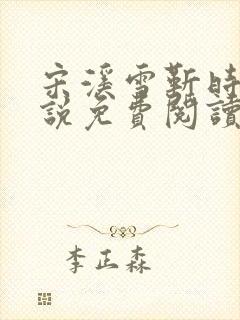 宋溪雪靳時
說免費閱讀
李正森